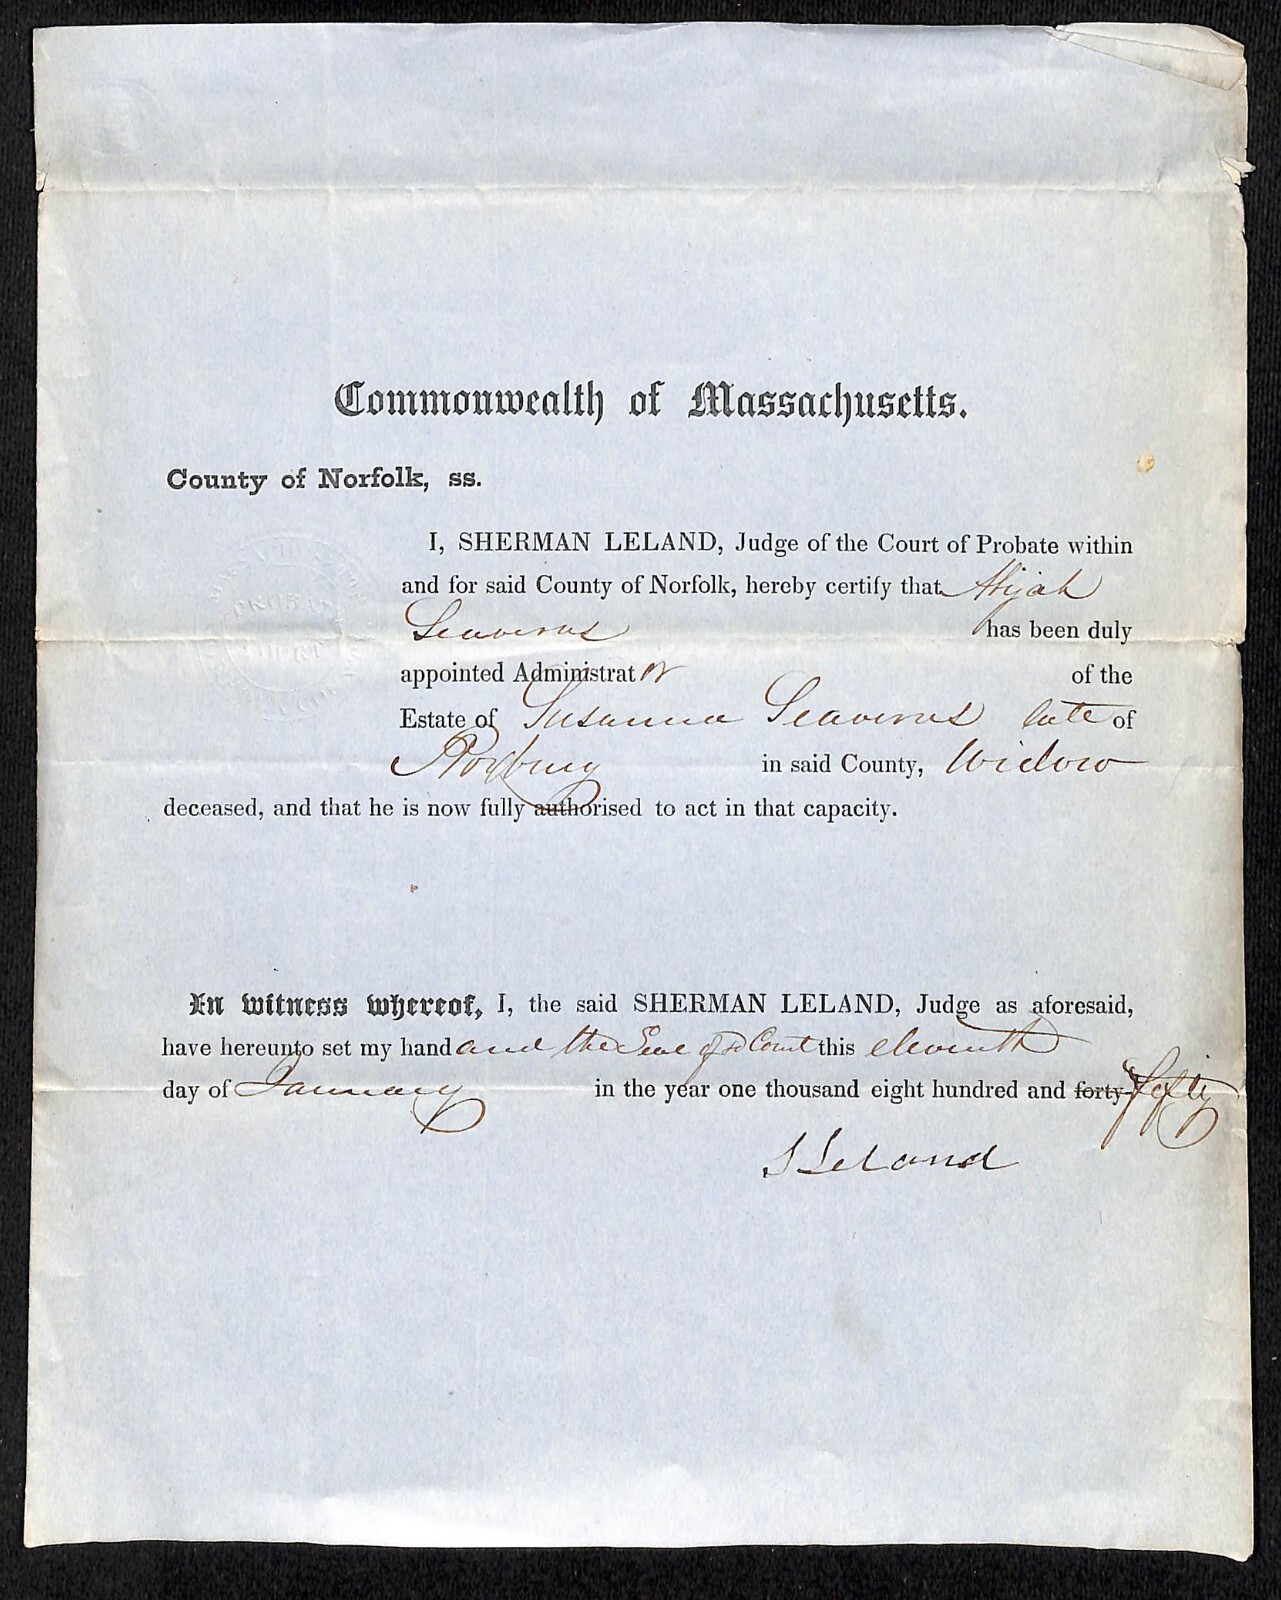 Commonwealth of Massachusetts.
County of Norfolk, ss.
I, SHERMAN LELAND, Judge of the Court of Probate within
and for said County of Norfolk, hereby certify that Abijah
Seaverns has been duly
appointed Administrator of the
Estate of Susanna Seaverns late of
Roxbury in said County, Widow
deceased, and that he is now fully authorised to act in that capacity.
PROBATE
COURT
In witness whereof, I, the said SHERMAN LELAND, Judge as aforesaid,
have hereunto set my hand and the Seal of sd Court this eleventh
day of January in the year one thousand eight hundred and forty- fifty
S Leland